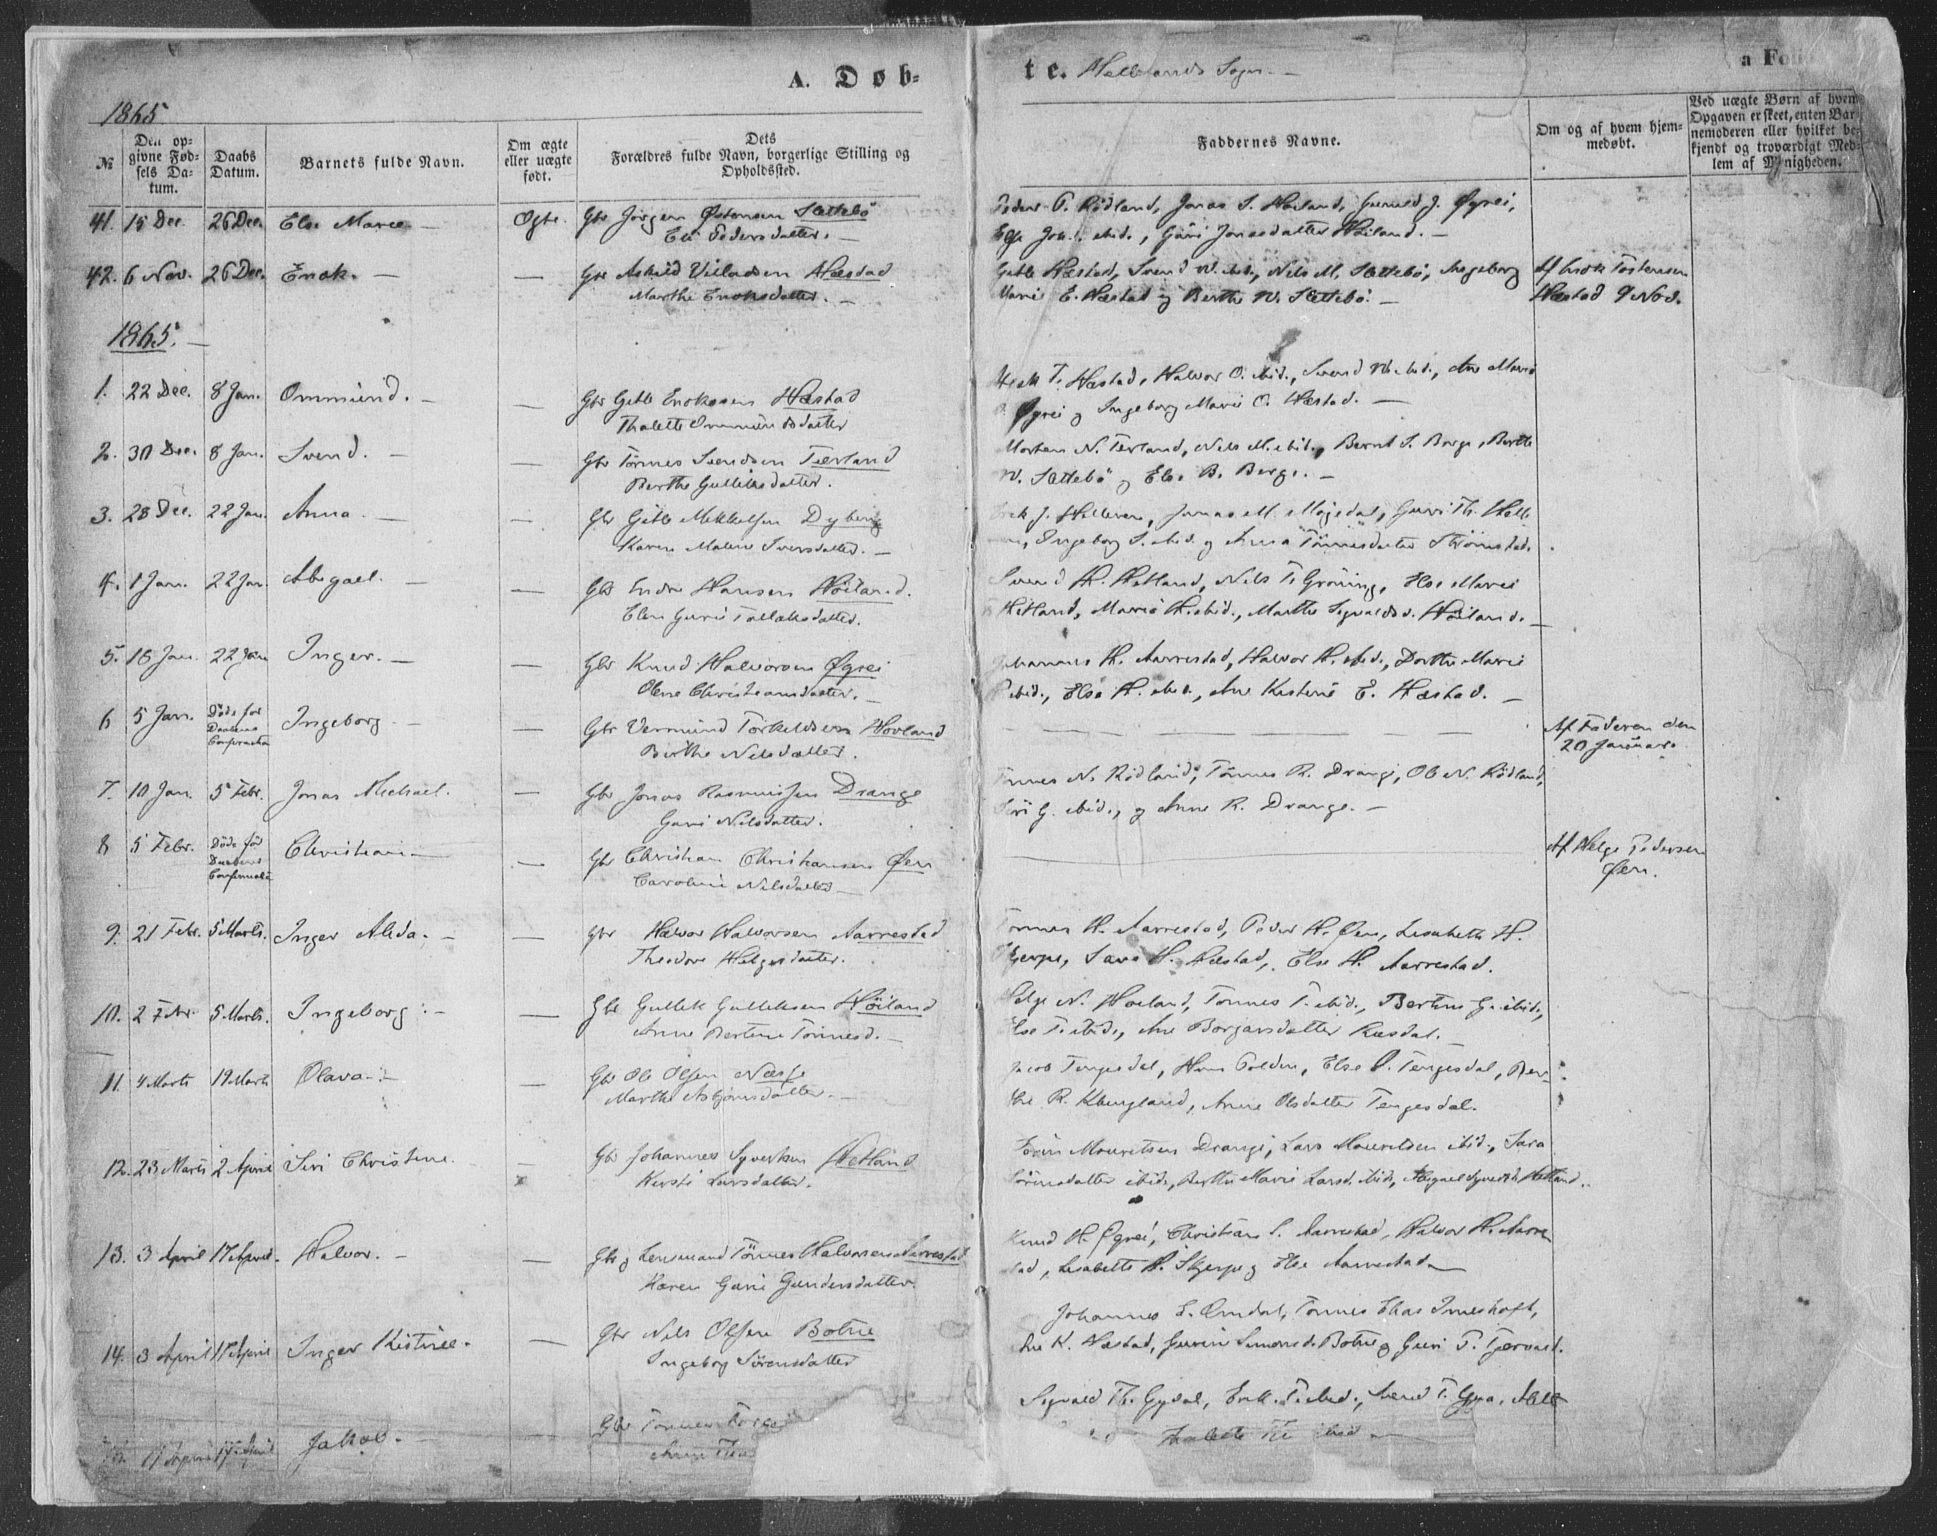 A. Døb-
te. Hellelands Sogn. —
a Fol
1865
№
Den opgivne Fødsels Datum.
Daabs Datum.
Barnets fulde Navn.
Om ægte eller uægte født.
Dets Forældres fulde Navn, borgerlige Stilling og Opholdssted.
Faddernes Navne.
Om og af hvem hjemmedøbt.
Ved uægte Børn af hvem Opgaven er skeet, enten Barnemoderen eller hvilket bekjendt og troværdigt Medlem af Menigheden.
41. 15 Dec. 26 Dec. Else Marie — Ægte. Gbr Jørgen Østensen Slettebö
Eli Pedersdatter. —
Peder P. Rödland, Jonas S. Höiland, Gunild J. Øgrei,
ibid., Guri Jonasdatter Höiland. —
42. 6 Nov. 26 Dec. Enok. — — Gbr Askild Villadsen Hæstad
Marthe Enoksdatter. —
Gitle Hæstad, Svend W. ibid., Nils M. Slettebö, Ingeborg
Marie E. Hæstad og Berthe W. Slettebö. —
Af Enok Tostensen
Hæstad 9 Nov.
1865. —
1. 22 Dec. 8 Jan. Ommund. — — Gbr Gitle Enoksen Hæstad
Thalette Ommundsdatter
T. Hæstad, Halvor O. ibid., Svend W. ibid., Ane Marie
Øgrei og Ingeborg Marie O. Hæstad. —
2. 30 Dec. 8 Jan. Svend. — — Gbr Tönnes Svendsen Terland
Berthe Gulliksdatter.
Morten N. Terland, Nils M. ibid., Bernt S. Berge, Berthe
W. Slettebö og Else B. Berge. —
3. 28 Dec. 22 Jan. Anna — — Gbr Gitle Mikkelsen Dyberg
Karen Malene Iversdatter. —
J. Helleren, Jonas M. Mögedal, Guri Th. Helle
Ingeborg S. ibid. og Anna Tönnesdatter Strömstad.
4. 1 Jan. 22 Jan. Abigael. — — Gbr Endre Hansen Höiland.
Elen Gurie Tollaksdatter.
Svend H. Hetland, Nils T. Gröning, Else Marie
Hetland, Marie H. ibid., Marthe Sigvaldsd. Höiland. —
5. 16 Jan. 22 Jan Inger. — — Gbr Knud Halvorsen Øgrei
Oline Christiansdatter. —
Johannes H. Aarrestad, Halvor H. ibid., Dorthe Marie
ibid., Else H. ibid., Ane Kistine E. Hæstad. —
6 5 Jan. Döde før Daabens Confirmation Ingeborg — — Gbr Vermund Torkildsen Hovland
Birthe Nilsdatter.
— — — — — —
Af Faderen den
20 Januar.
7. 10 Jan. 5 Febr. Jonas Michael. — Gbr Jonas Rasmussen Drange
Guri Nilsdatter.
Tönnes N. Rödland, Tönnes R. Drange, Ole N. Rödland,
Siri G. ibid., og Anne R. Drange. —
8 5 Febr. Döde før Daabens Confirmation Christian — — Gbr Christian Christiansen Øen
Caroline Nilsdatter —
Af Helge Pedersen
Øen.
9. 21 Febr. 5 Marts. Inger Alida. — — Gbr Halvor Halvorsen Aarrestad
Theodora Helgesdatter.
Tönnes H. Aarrestad, Peder H. Øen, Lisabeth H.
Skjerpe, Sara H. Hæstad, Else H. Aarrestad.
10. 2 Febr. 5 Marts. Ingeborg. — — Gbr Gullik Gulliksen Höiland
Anne Bertine Tönnesd. —
Helge N. Hoeland, Tönnes T. ibid., Bertine G. ibid.,
Else T. ibid., Ane Borgarsdatter Ræsdal. —
11. 4 Marts 19 Marts Olava. — — Gbr Ole Olsen Næsse
Marthe Asbjørnsdatter. —
Jacob Tengesdal, Hans Golden, Else O. Tengesdal, Ber-
the R. Klungland, Anne Olsdatter Tengesdal.
12. 23 Marts 2 April Siri Christine. — Gbr Johannes Syvertsen Hetland
Kirsti Larsdatter.
Mouritsen Drange, Lars Mouritsen ibid., Sara
ibid., Berthe Marie Larsd. ibid., Abigael Syvertsd. Hetland.
13. 3 April 17 April. Halvor. — — Gbr og Lensmand Tönnes Halvorsen Aarrestad
Karen Gurie Gundersdatter.
Knud H. Øgrei, Christian S. Aarrestad, Halvor H. Aarre
stad, Lisabeth H. Skjerpe og Else Aarrestad —
14. 3 April 17 April Inger Kistine. — Gbr Nils Olsen Botne
Ingeborg Sörensdatter
Johannes S. Omdal, Tönnes Elias
Ane K. Hæstad, Gurine Simonsd. Botne og Guri T.
17 April Jakob. — Gbr Tönnes
Anne
Sigvald Th. Gydal, Erik T. ibid., Svend T. Gya,
Thalette ibid —